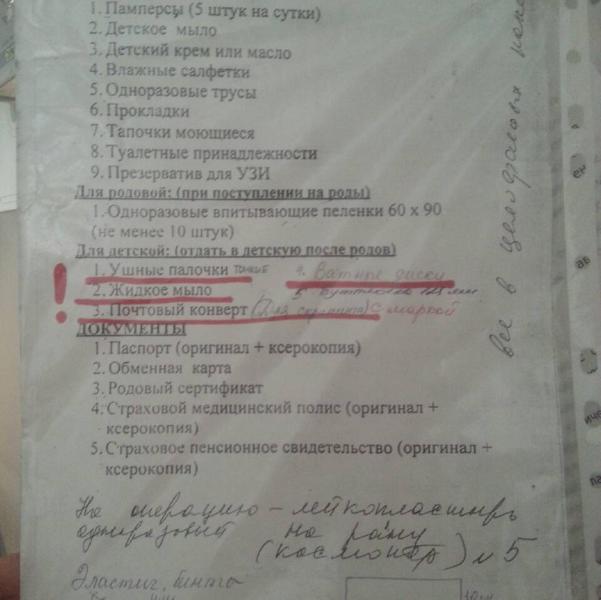 1. Памперсы (5 штук на сутки)
2. Детское мыло
3. Детский крем или масло
4. Влажные салфетки
5. Одноразовые трусы
6. Прокладки
7. Тапочки моющиеся
8. Туалетные принадлежности
9. Презерватив для УЗИ
Для родовой: (при поступлении на роды)
1. Одноразовые впитывающие пеленки 60 х 90
(не менее 10 штук)
Для детской: (отдать в детскую после родов)
! 1. Ушные палочки тонкие 4. Ватные диски
2. Жидкое мыло в
3. Почтовый конверт (Для скрининга) с маркой
ДОКУМЕНТЫ
1. Паспорт (оригинал + ксерокопия)
2. Обменная карта
3. Родовый сертификат
4. Страховой медицинский полис (оригинал +
ксерокопия)
5. Страховое пенсионное свидетельство (оригинал +
ксерокопия)
На операцию – лейкопластырь
одноразовый на рану
(космопор) №5
Эластич. бинты
все в